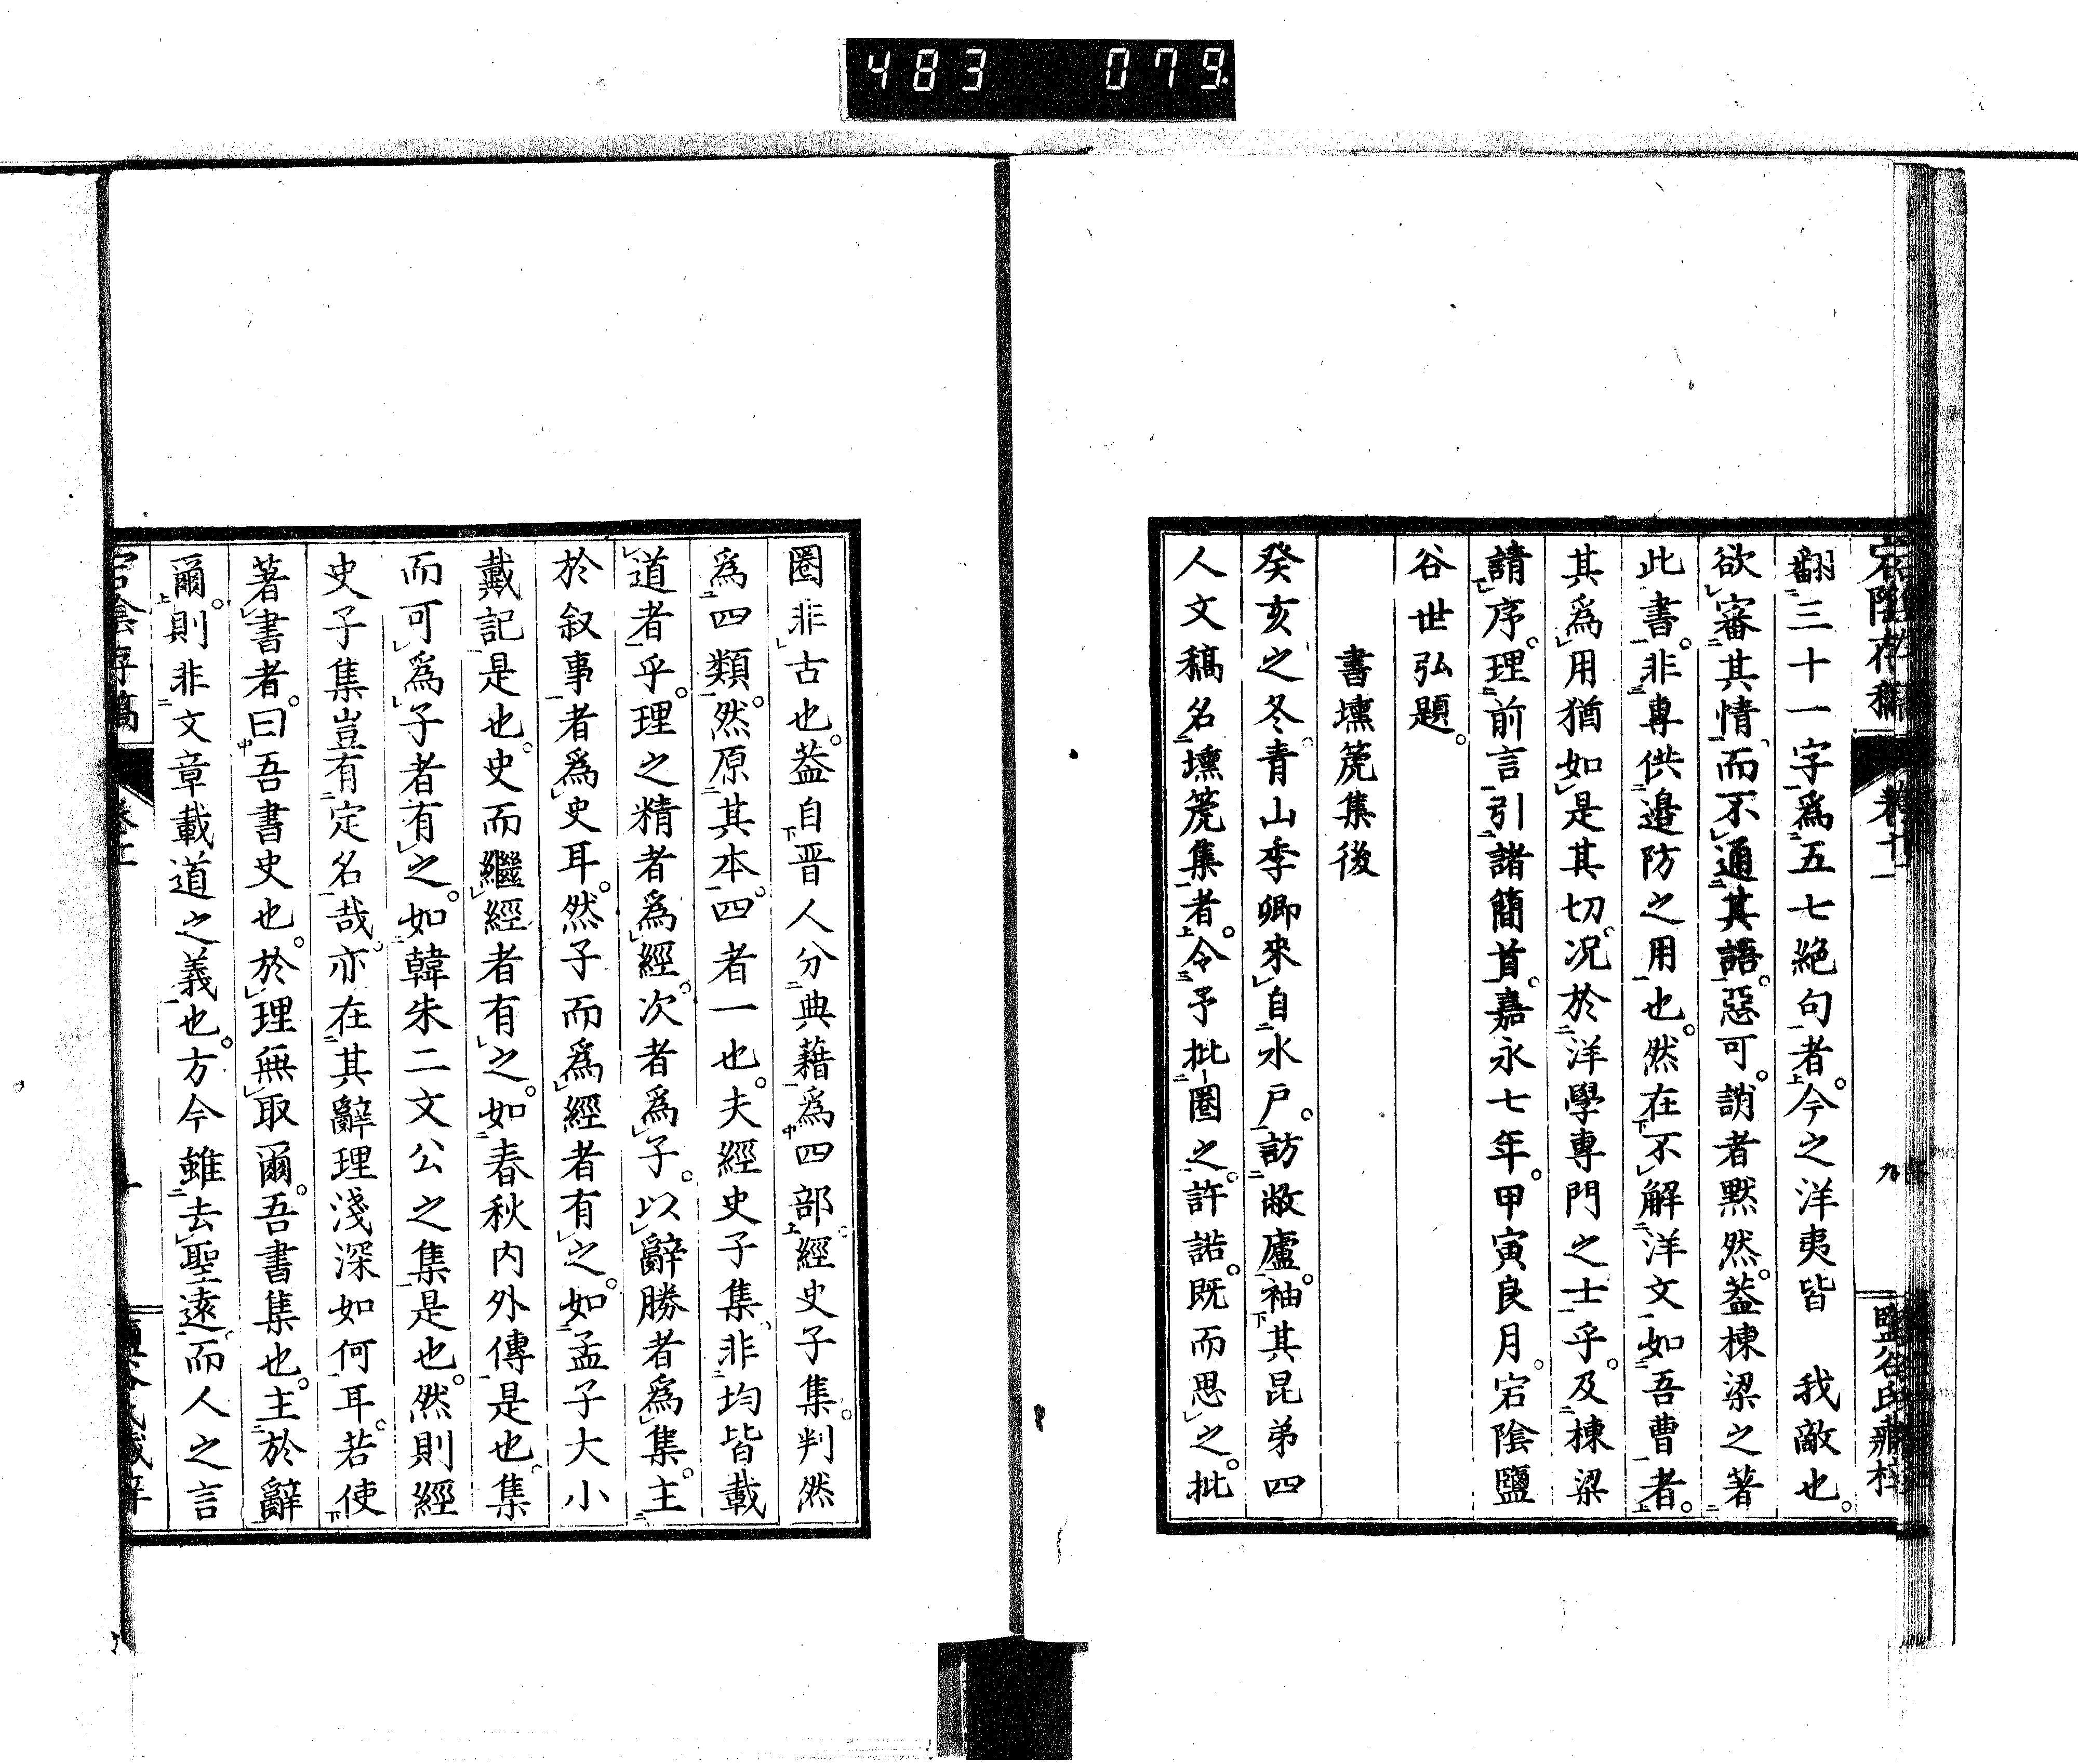 483 079
宕陰存稿 卷十一 九 鹽谷氏雕梓
翻三十一字爲五七絕句者。今之洋夷皆 我敵也。
欲審其情而不通其語。惡可。誚者默然。葢棟梁之著
此書。非專供邉防之用也。然在不解洋文如吾曹者。
其爲用猶如是其切。况於洋學專門之士乎。及棟梁
請序。理前言引諸簡首。嘉永七年。甲寅良月。宕陰鹽
谷世弘題。
書壎篪集後
癸亥之冬。青山季卿來自水戶。訪敝廬。袖其昆弟四
人文稿名壎篪集者。令予批圈之。許諾。既而思之。批
圈非古也。葢自晋人分典藉爲四部。經史子集。判然
爲四類。然原其本。四者一也。夫經史子集。非均皆載
道者乎。理之精者爲經。次者爲子。以辭勝者爲集。主
於叙事者爲史耳。然子而爲經者有之。如孟子大小
戴記是也。史而繼經者有之。如春秋內外傳是也。集
而可爲子者有之。如韓朱二文公之集是也。然則經
史子集豈有定名哉。亦在其辭理淺深如何耳。若使
著書者。曰吾書史也。於理無取爾。吾書集也。主於辭
爾。則非文章載道之義也。方今雖去聖遠。而人之言
宕陰存稿